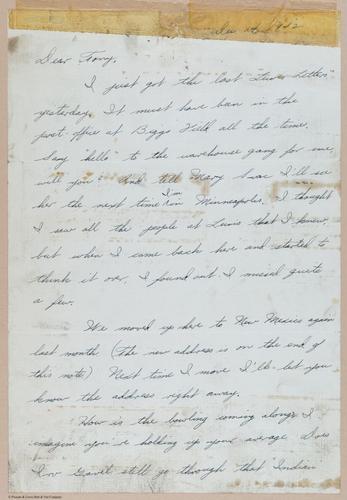 Dear Tony,
I just got the last "Lewis Letters"
yesterday. It must have been in the
post-office at Biggs Field all the time.
Say "hello" to the warehouse gang for me,
will you? And tell Mary Lou I'll see
her the next time I'm in Minneapolis. I thought
I saw all the people at Lewis that I knew,
but when I came back here and started to
think it over, I found out I missed quite
a few.
We moved up here to New Mexico again
last month (The new address is on the end of
this note) Next time I move I'll let you
know the address right away.
How is the bowling coming along? I
imagine you're holding up your average. Does
still go through that "Indian